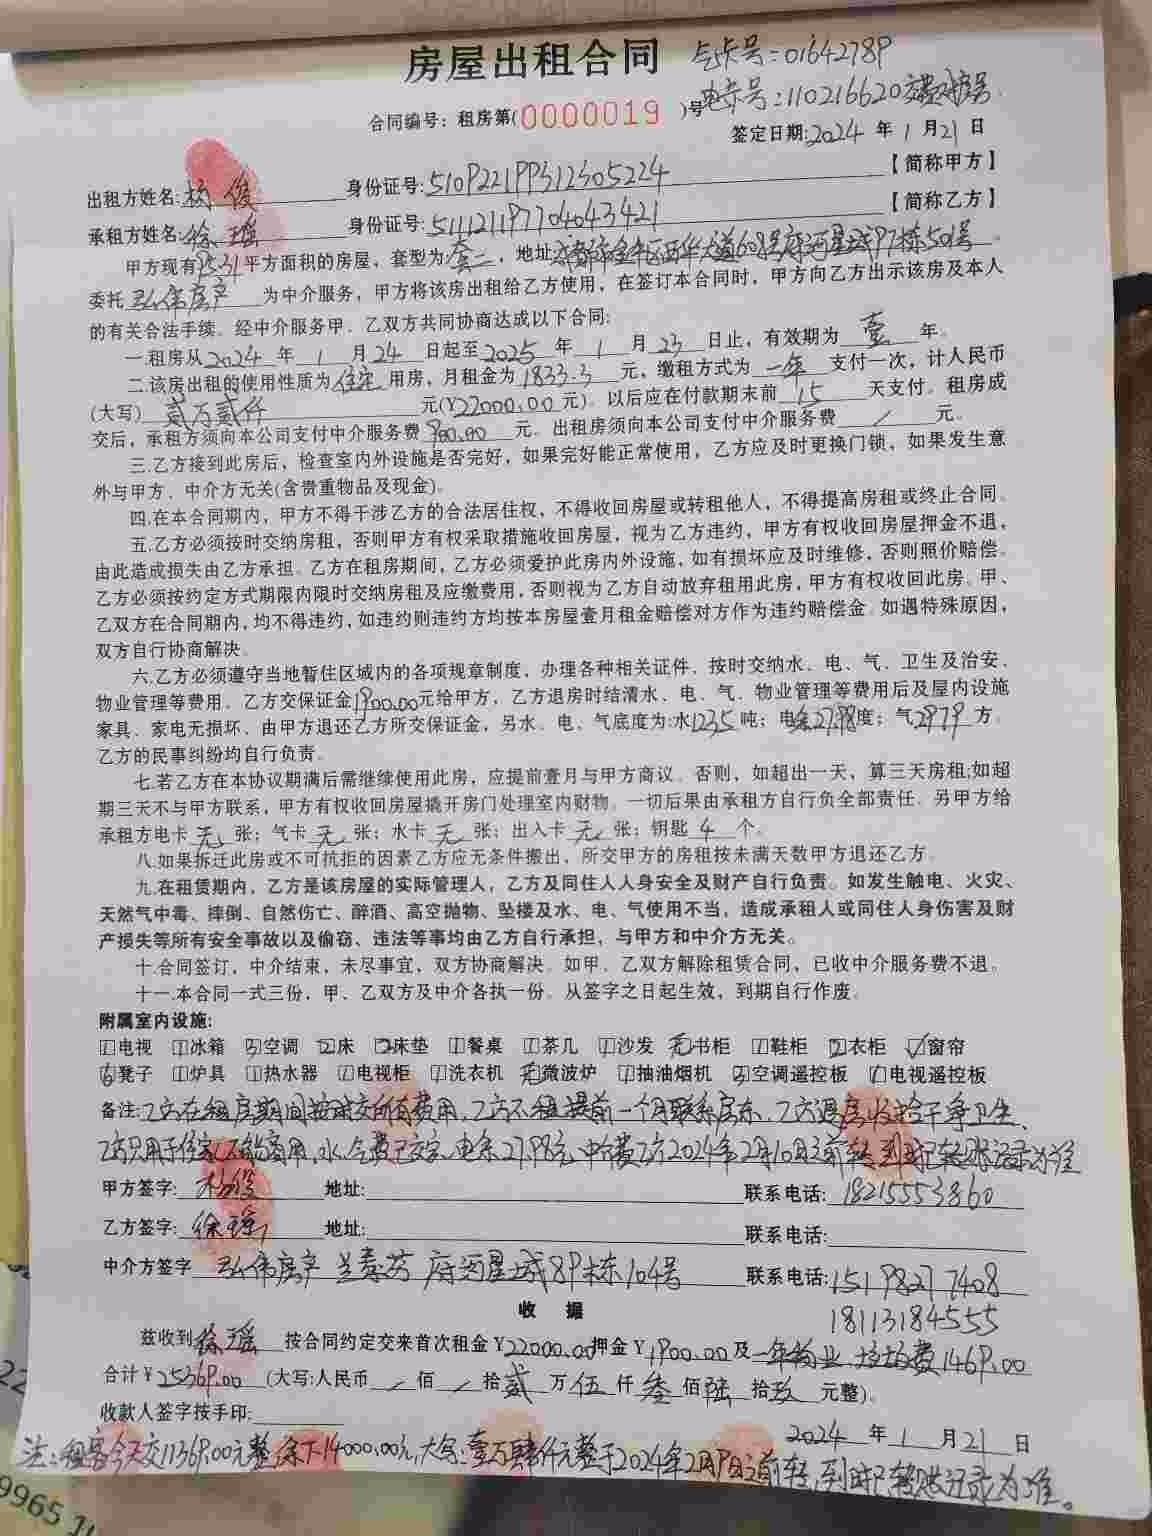 房屋出租合同 气卡号:0164278P
合同编号: 租房第(0000019)号 电卡号:110216620交费对接号
签定日期:2024年1月21日
出租方姓名:杨俊 身份证号:510P221PP312305224 【简称甲方】
承租方姓名:徐瑶 身份证号:511121197704043421 【简称乙方】
甲方现有 平方面积的房屋, 套型为套二, 地址成都市金牛区西华大道608号府河星城P7栋501号。
委托弘伟房产为中介服务, 甲方将该房出租给乙方使用, 在签订本合同时, 甲方向乙方出示该房及本人
的有关合法手续。经中介服务甲、乙双方共同协商达成以下合同:
一.租房从2024年1月24日起至2025年1月23日止, 有效期为壹年。
二.该房出租的使用性质为住宅用房, 月租金为1833.3元, 缴租方式为一年支付一次, 计人民币
(大写)贰万贰仟元(¥22000.00元)。以后应在付款期末前15天支付。租房成
交后, 承租方须向本公司支付中介服务费900.00元。出租房须向本公司支付中介服务费/元。
三.乙方接到此房后, 检查室内外设施是否完好, 如果完好能正常使用, 乙方应及时更换门锁, 如果发生意
外与甲方、中介方无关(含贵重物品及现金)。
四.在本合同期内, 甲方不得干涉乙方的合法居住权, 不得收回房屋或转租他人, 不得提高房租或终止合同。
五.乙方必须按时交纳房租, 否则甲方有权采取措施收回房屋, 视为乙方违约, 甲方有权收回房屋押金不退,
由此造成损失由乙方承担。乙方在租房期间, 乙方必须爱护此房内外设施, 如有损坏应及时维修, 否则照价赔偿。
乙方必须按约定方式期限内限时交纳房租及应缴费用, 否则视为乙方自动放弃租用此房, 甲方有权收回此房。甲、
乙双方在合同期内, 均不得违约, 如违约则违约方均按本房屋壹月租金赔偿对方作为违约赔偿金。如遇特殊原因,
双方自行协商解决。
六.乙方必须遵守当地暂住区域内的各项规章制度, 办理各种相关证件, 按时交纳水、电、气、卫生及治安、
物业管理等费用。乙方交保证金1900.00元给甲方, 乙方退房时结清水、电、气、物业管理等费用后及屋内设施
家具、家电无损坏, 由甲方退还乙方所交保证金, 另水、电、气底度为:水1235吨; 电余27.98度; 气2979方。
乙方的民事纠纷均自行负责。
七.若乙方在本协议期满后需继续使用此房, 应提前壹月与甲方商议。否则, 如超出一天, 算三天房租;如超
期三天不与甲方联系, 甲方有权收回房屋撬开房门处理室内财物。一切后果由承租方自行负全部责任。另甲方给
承租方电卡无张; 气卡无张; 水卡无张; 出入卡无张; 钥匙4个。
八.如果拆迁此房或不可抗拒的因素乙方应无条件搬出, 所交甲方的房租按未满天数甲方退还乙方。
九.在租赁期内, 乙方是该房屋的实际管理人, 乙方及同住人人身安全及财产自行负责。如发生触电、火灾、
天然气中毒、摔倒、自然伤亡、醉酒、高空抛物、坠楼及水、电、气使用不当, 造成承租人或同住人身伤害及财
产损失等所有安全事故以及偷窃、违法等事均由乙方自行承担, 与甲方和中介方无关。
十.合同签订, 中介结束, 未尽事宜, 双方协商解决。如甲、乙双方解除租赁合同, 已收中介服务费不退。
十一.本合同一式三份, 甲、乙双方及中介各执一份。从签字之日起生效, 到期自行作废。
附属室内设施:
1电视 1冰箱 3空调 2床 2床垫 1餐桌 1茶几 1沙发 无书柜 1鞋柜 2衣柜 √窗帘
6凳子 1炉具 1热水器 1电视柜 1洗衣机 无微波炉 1抽油烟机 3空调遥控板 1电视遥控板
备注:乙方在租房期间按时交所有费用, 乙方不租提前一个月联系房东, 乙方退房收拾干净卫生、
乙方只用于住家不能商用, 水、气费已交完, 电余27.98元, 中介费乙方2024年2月10日之前转到时已转账记录为准
甲方签字: 杨俊 地址: 联系电话: 18215553860
乙方签字: 徐瑶 地址: 联系电话:
中介方签字 弘伟房产 兰春芬 府河星城8P栋104号 联系电话:15198277408
18113184555
收 据
兹收到徐瑶按合同约定交来首次租金¥22000.00押金¥1900.00及一年物业、垃圾费1469.00
合计¥25369.00(大写:人民币/佰/拾贰万伍仟叁佰陆拾玖元整)。
收款人签字按手印:
2024年1月21日
注:租客今天交11369.00元整, 余下14000.00元, 大写:壹万肆仟元整于2024年2月9日之前转, 到时已转账记录为准。
9965